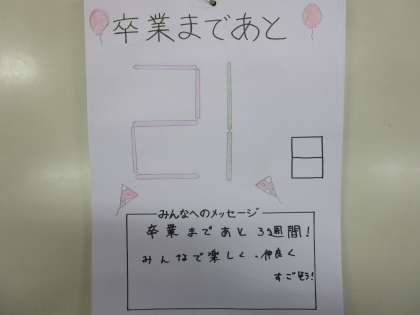 卒業まであと
21日
みんなへのメッセージ
卒業まであと3週間!
みんなで楽しく、仲良く
すごそう!